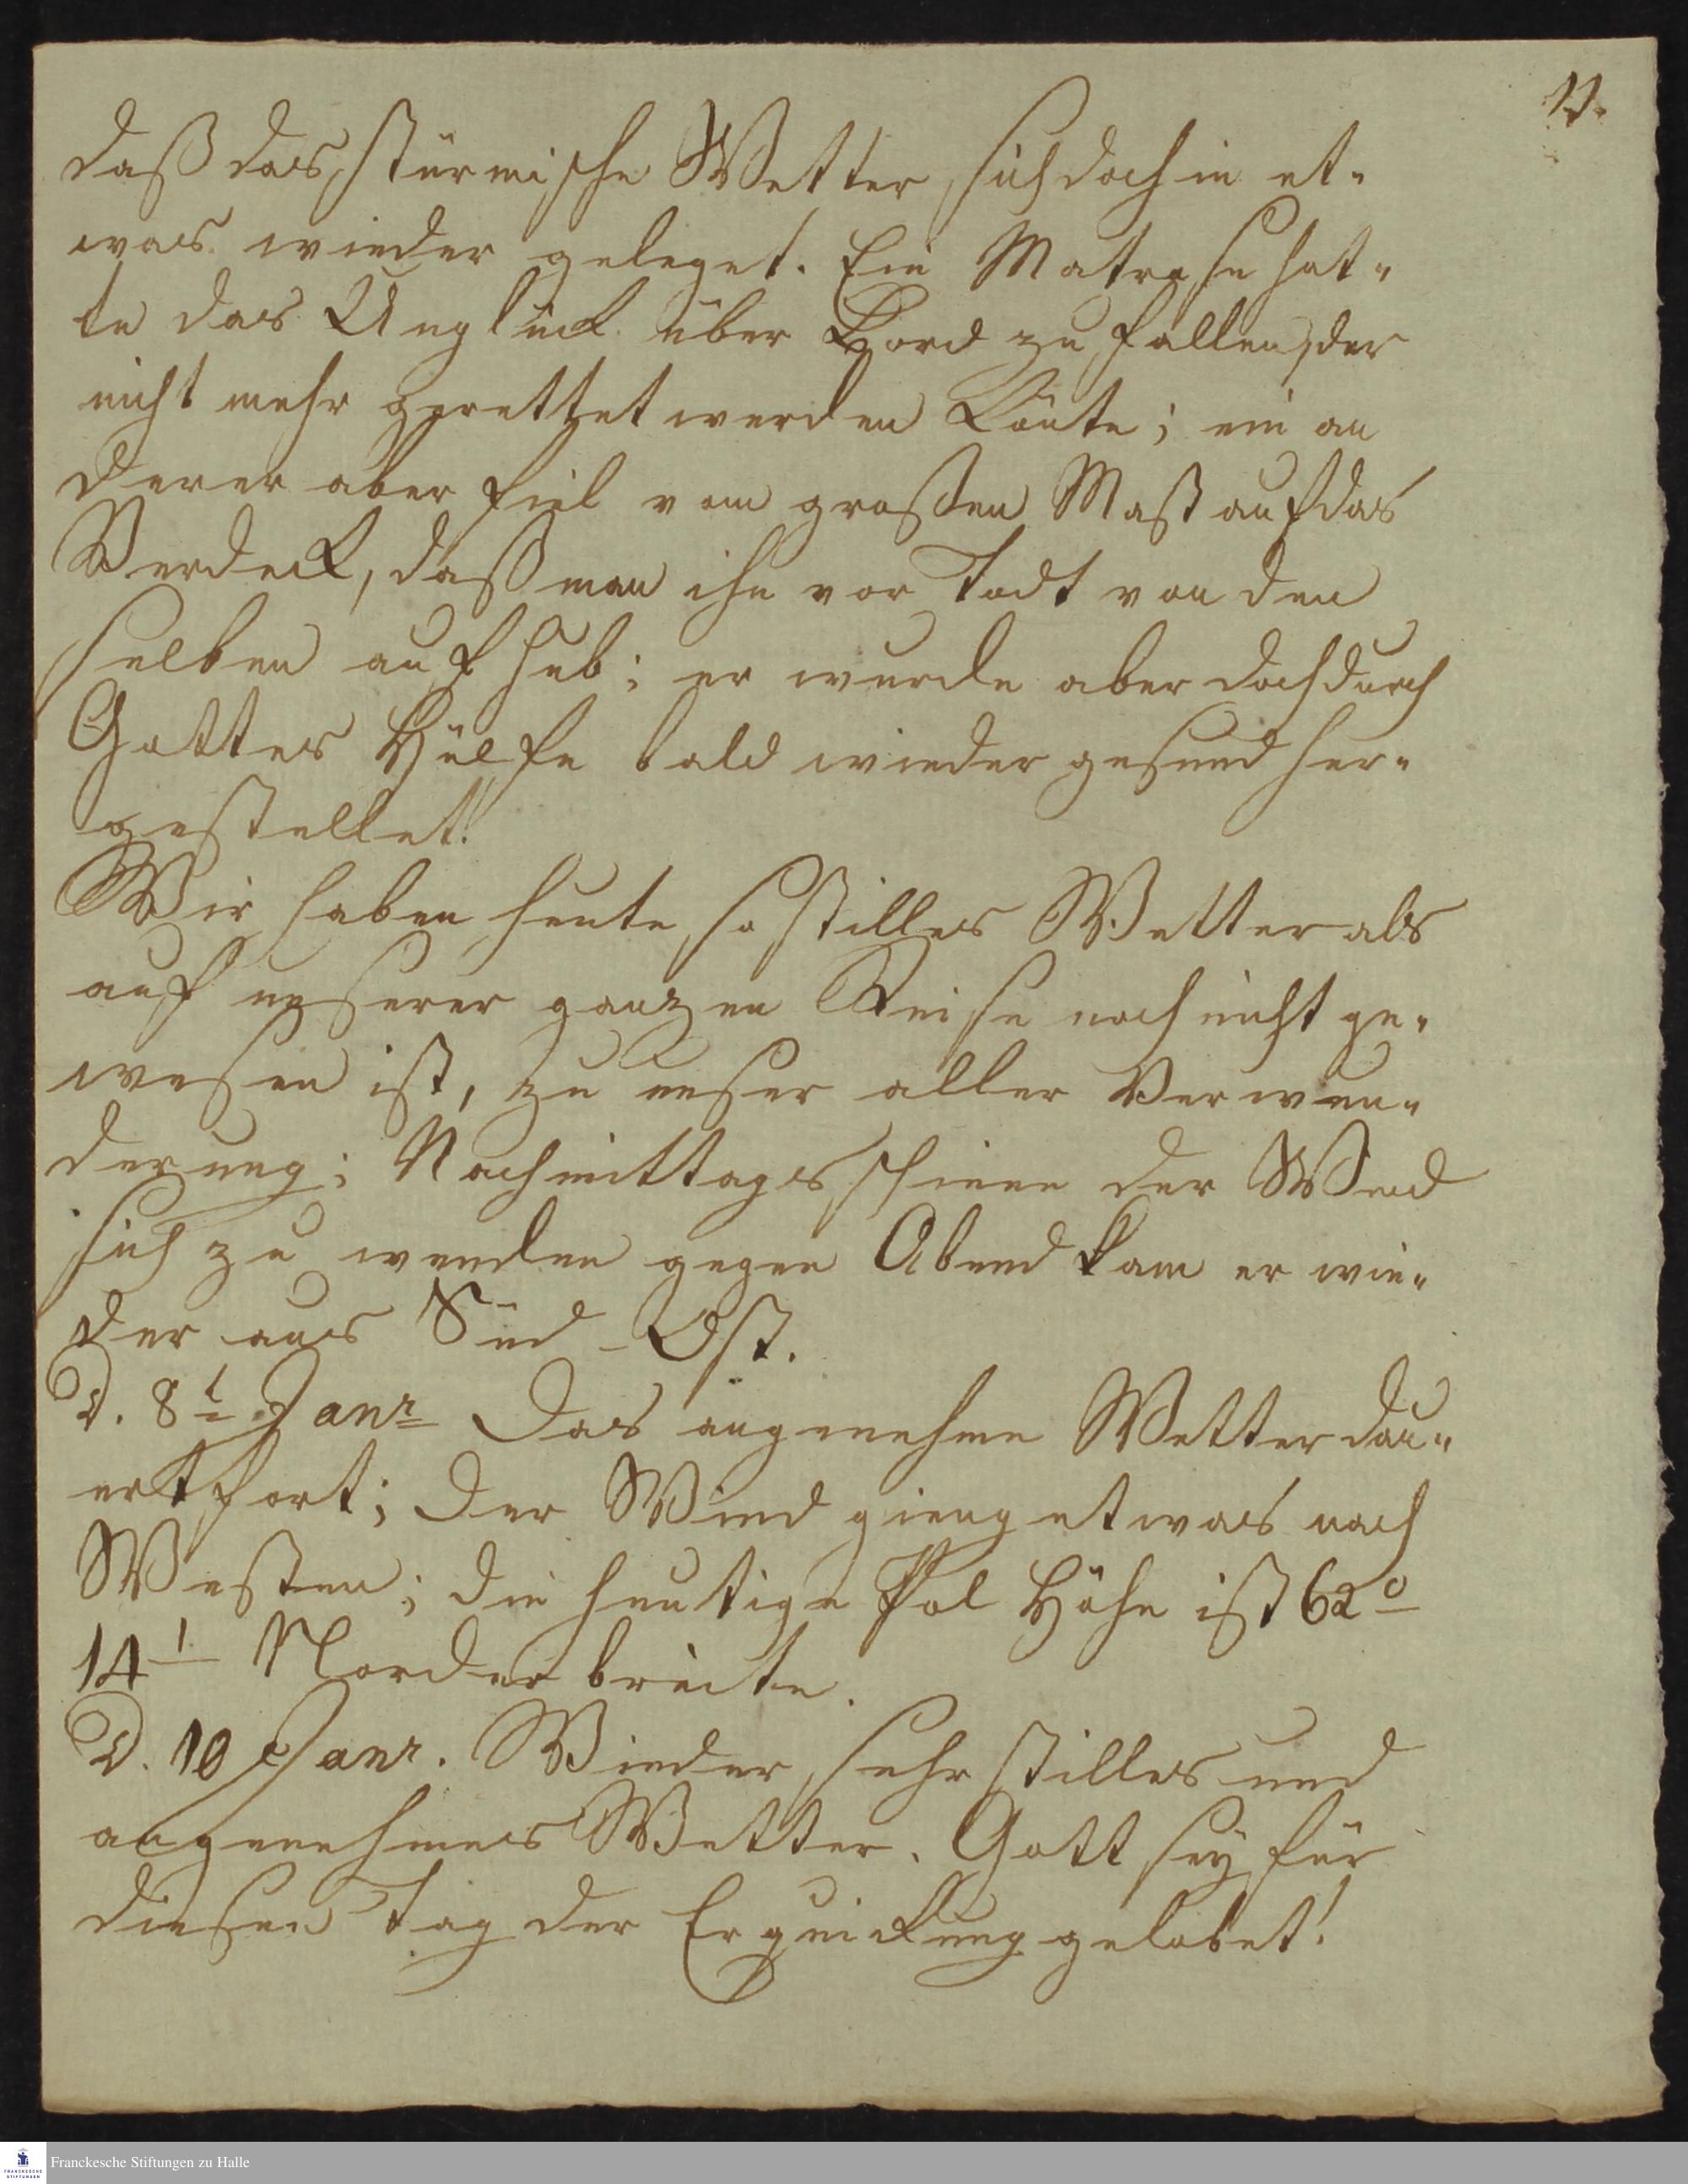 11.
daß das stürmische Wetter sich doch in et-
was wieder geleget. Ein Matrose hat-
te das Unglück über Bord zu fallen, der
nicht mehr gerettet werden konte; ein an
derer aber fiel vom großen Mast auf das
Verdeck, daß man ihn vor Todt von den
selben auf hub; er wurde aber doch durch
Gottes Hülfe bald wieder gesund her-
gestellet!
Wir haben heute so stilles Wetter als
auf unserer ganzen Reise noch nicht ge-
wesen ist, zu unser aller Verwun-
derung; Nachmittags schiene der Wind
sich zu wenden gegen Abend kam er wie-
der aus Süd-Ost.
D. 8t Janr Das angenehme Wetter dau-
ert fort; der Wind gieng etwas nach
Westen; die heutige Pol Höhe ist 62°
14' Norder breite.
D. 10 Janr. Wieder sehr stilles und
angenehmes Wetter. Gott seÿ für
diesen Tag der Erquickung gelobet!
Franckesche Stiftungen zu Halle
FRANCKESCHE
STIFTUNGEN